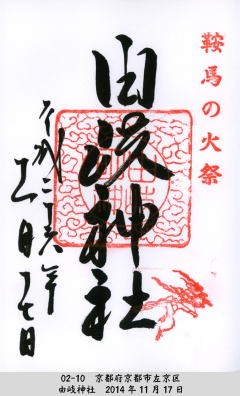 鞍馬の火祭
由岐神社
平成二十六年
十一月十七日
02-10 京都府京都市左京区
由岐神社 2014年11月17日